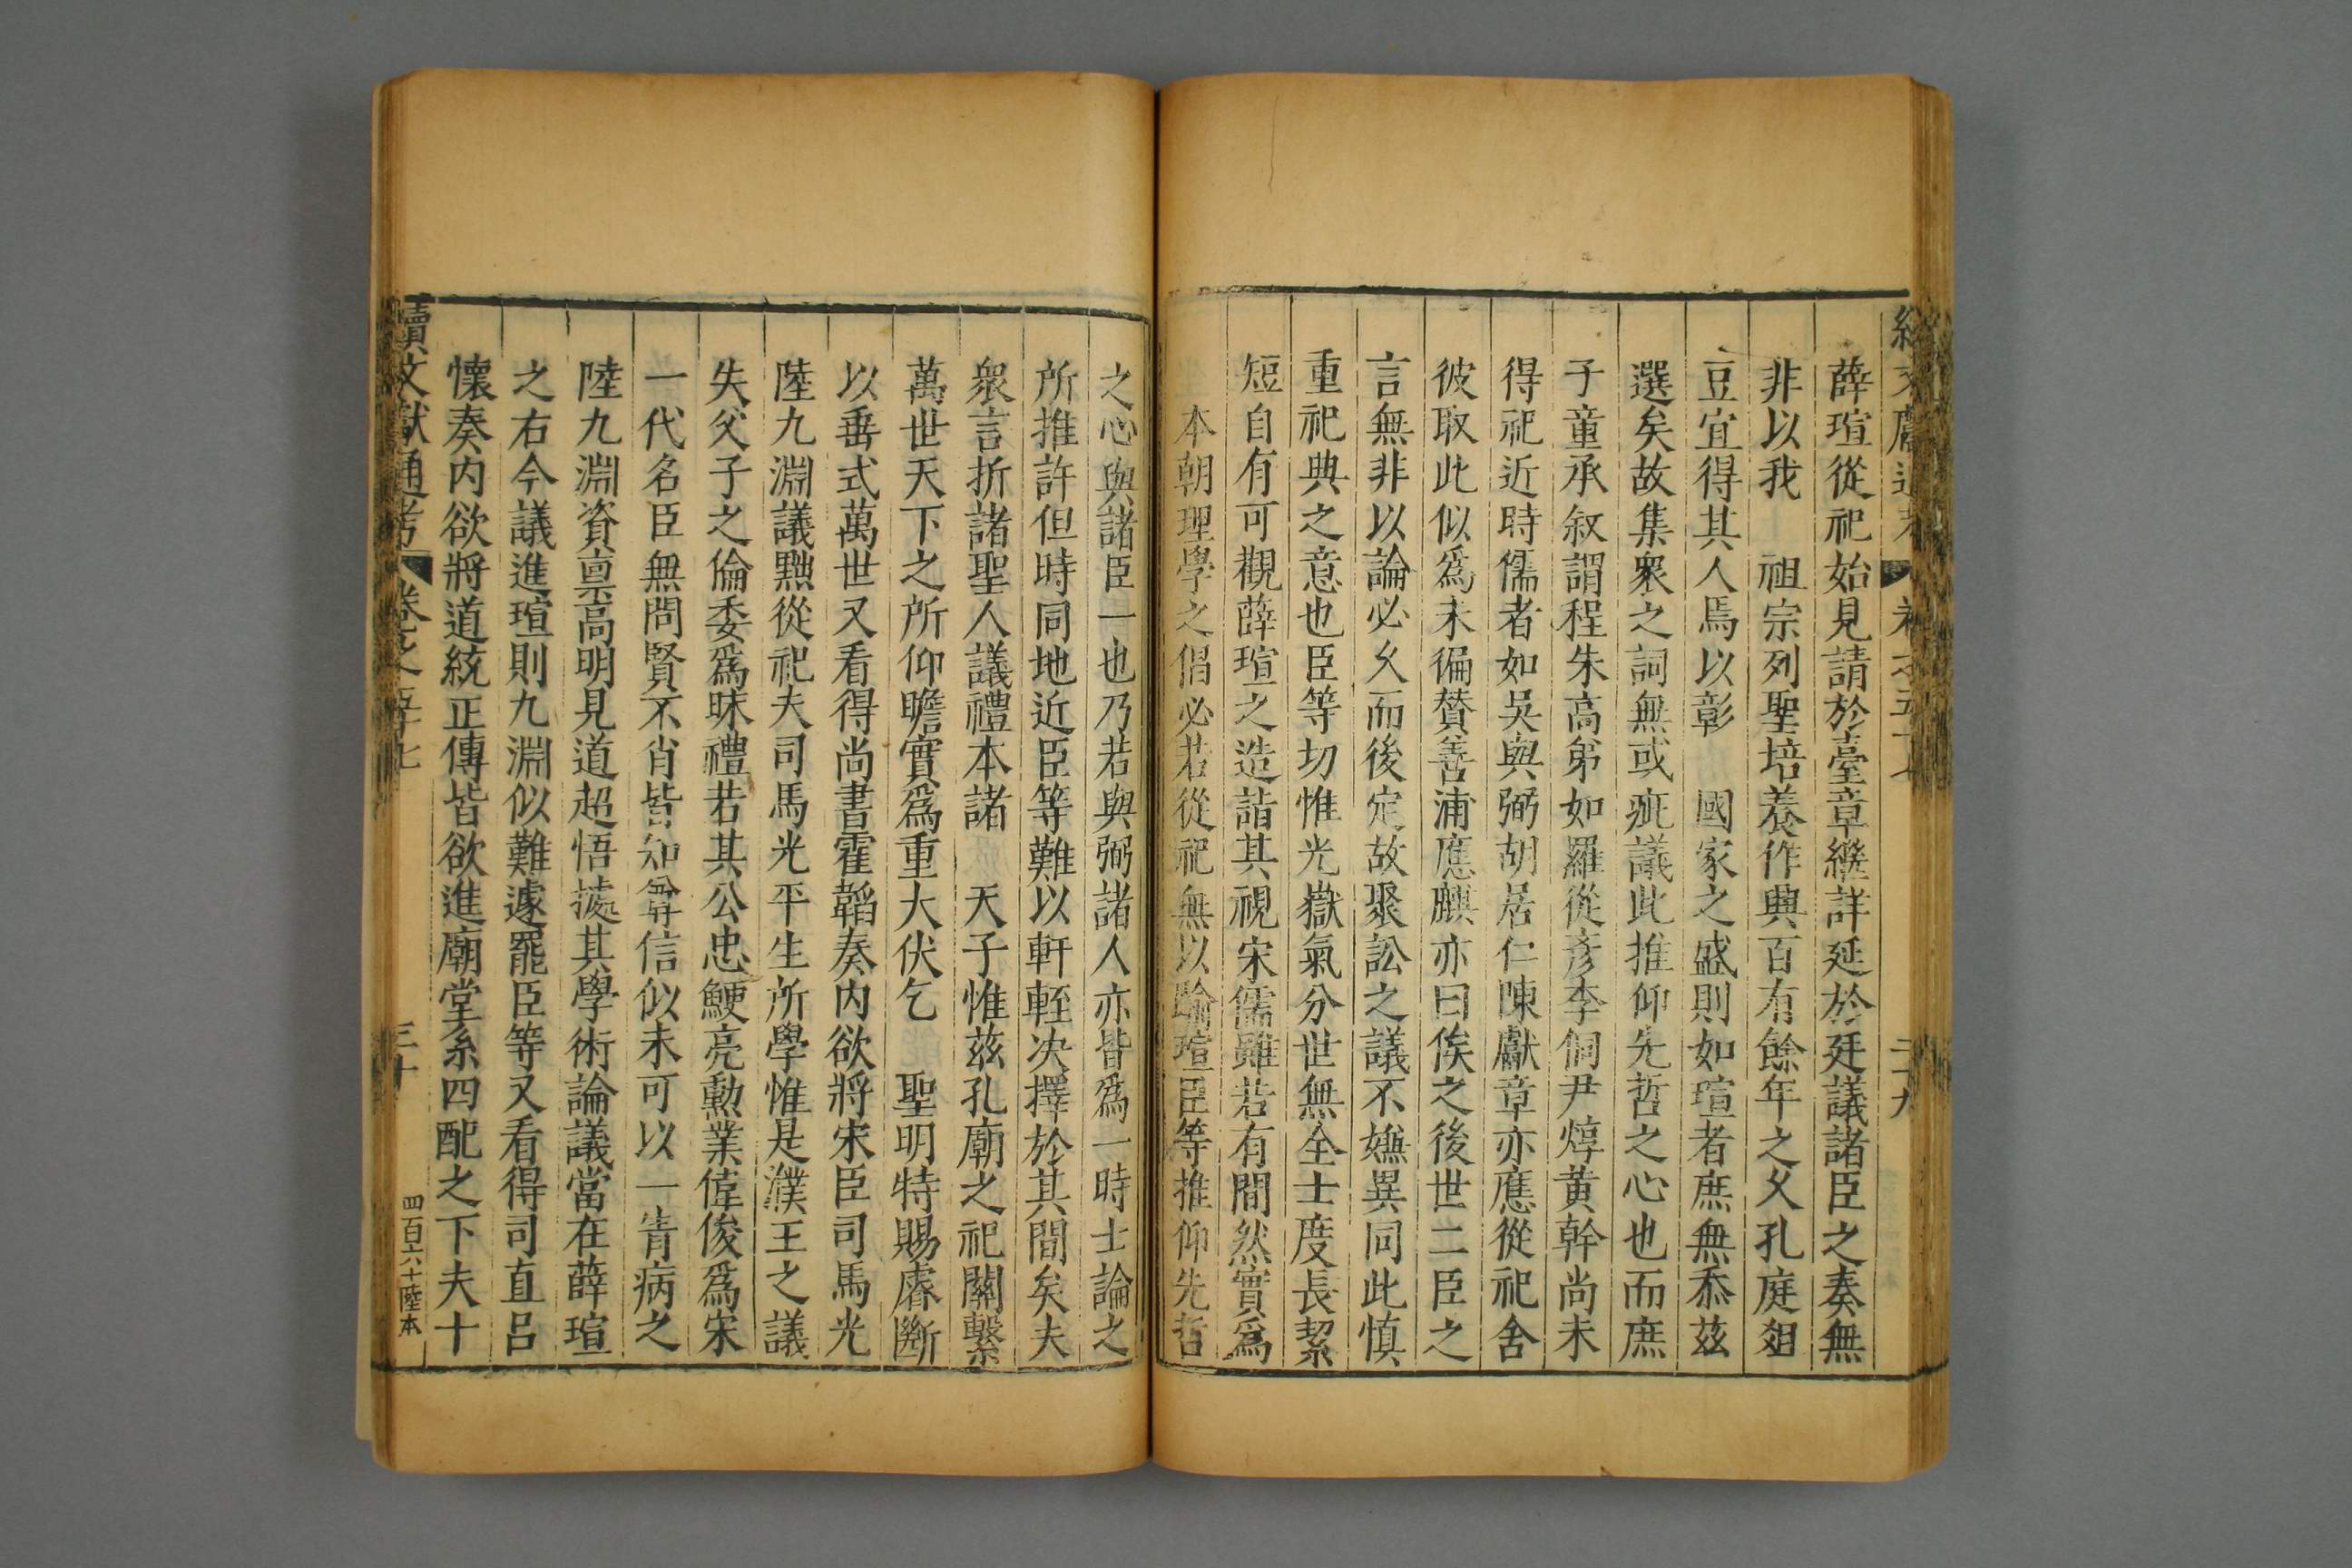 薛瑄從祀始見請於臺章繼詳延於廷議諸臣之奏無
非以我 祖宗列聖培養作興百有餘年之久孔庭俎
豆宜得其人焉以彰 國家之盛則如瑄者庶無忝茲
選矣故集衆之詞無或疵議此推仰先哲之心也而庶
子童承叙謂程朱高弟如羅從彥李侗尹焞黃幹尚未
得祀近時儒者如吳與弼胡居仁陳獻章亦應從祀舍
彼取此似爲未徧賛善浦應麒亦曰俟之後世二臣之
言無非以論必久而後定故聚訟之議不嫌異同此慎
重祀典之意也臣等切惟光嶽氣分世無全士度長絜
短自有可觀薛瑄之造詣其視宋儒雖若有間然實爲
本朝理學之倡必若從祀無以踰瑄臣等推仰先哲
之心與諸臣一也乃若與弼諸人亦皆爲一時士論之
所推許但時同地近臣等難以軒輊决擇於其間矣夫
衆言折諸聖人議禮本諸 天子惟茲孔廟之祀關繫
萬世天下之所仰瞻實爲重大伏乞 聖明特賜睿斷
以垂式萬世又看得尚書霍韜奏内欲將宋臣司馬光
陸九淵議黜從祀夫司馬光平生所學惟是濮王之議
失父子之倫委爲昧禮若其公忠鯁亮勳業偉俊爲宋
一代名臣無問賢不肖皆知尊信似未可以一眚病之
陸九淵資禀高明見道超悟據其學術論議當在薛瑄
之右今議進瑄則九淵似難遽罷臣等又看得司直呂
懷奏内欲將道統正傳皆欲進廟堂系四配之下夫十
續文獻通考 卷之五十七 三十 四百六十陸本